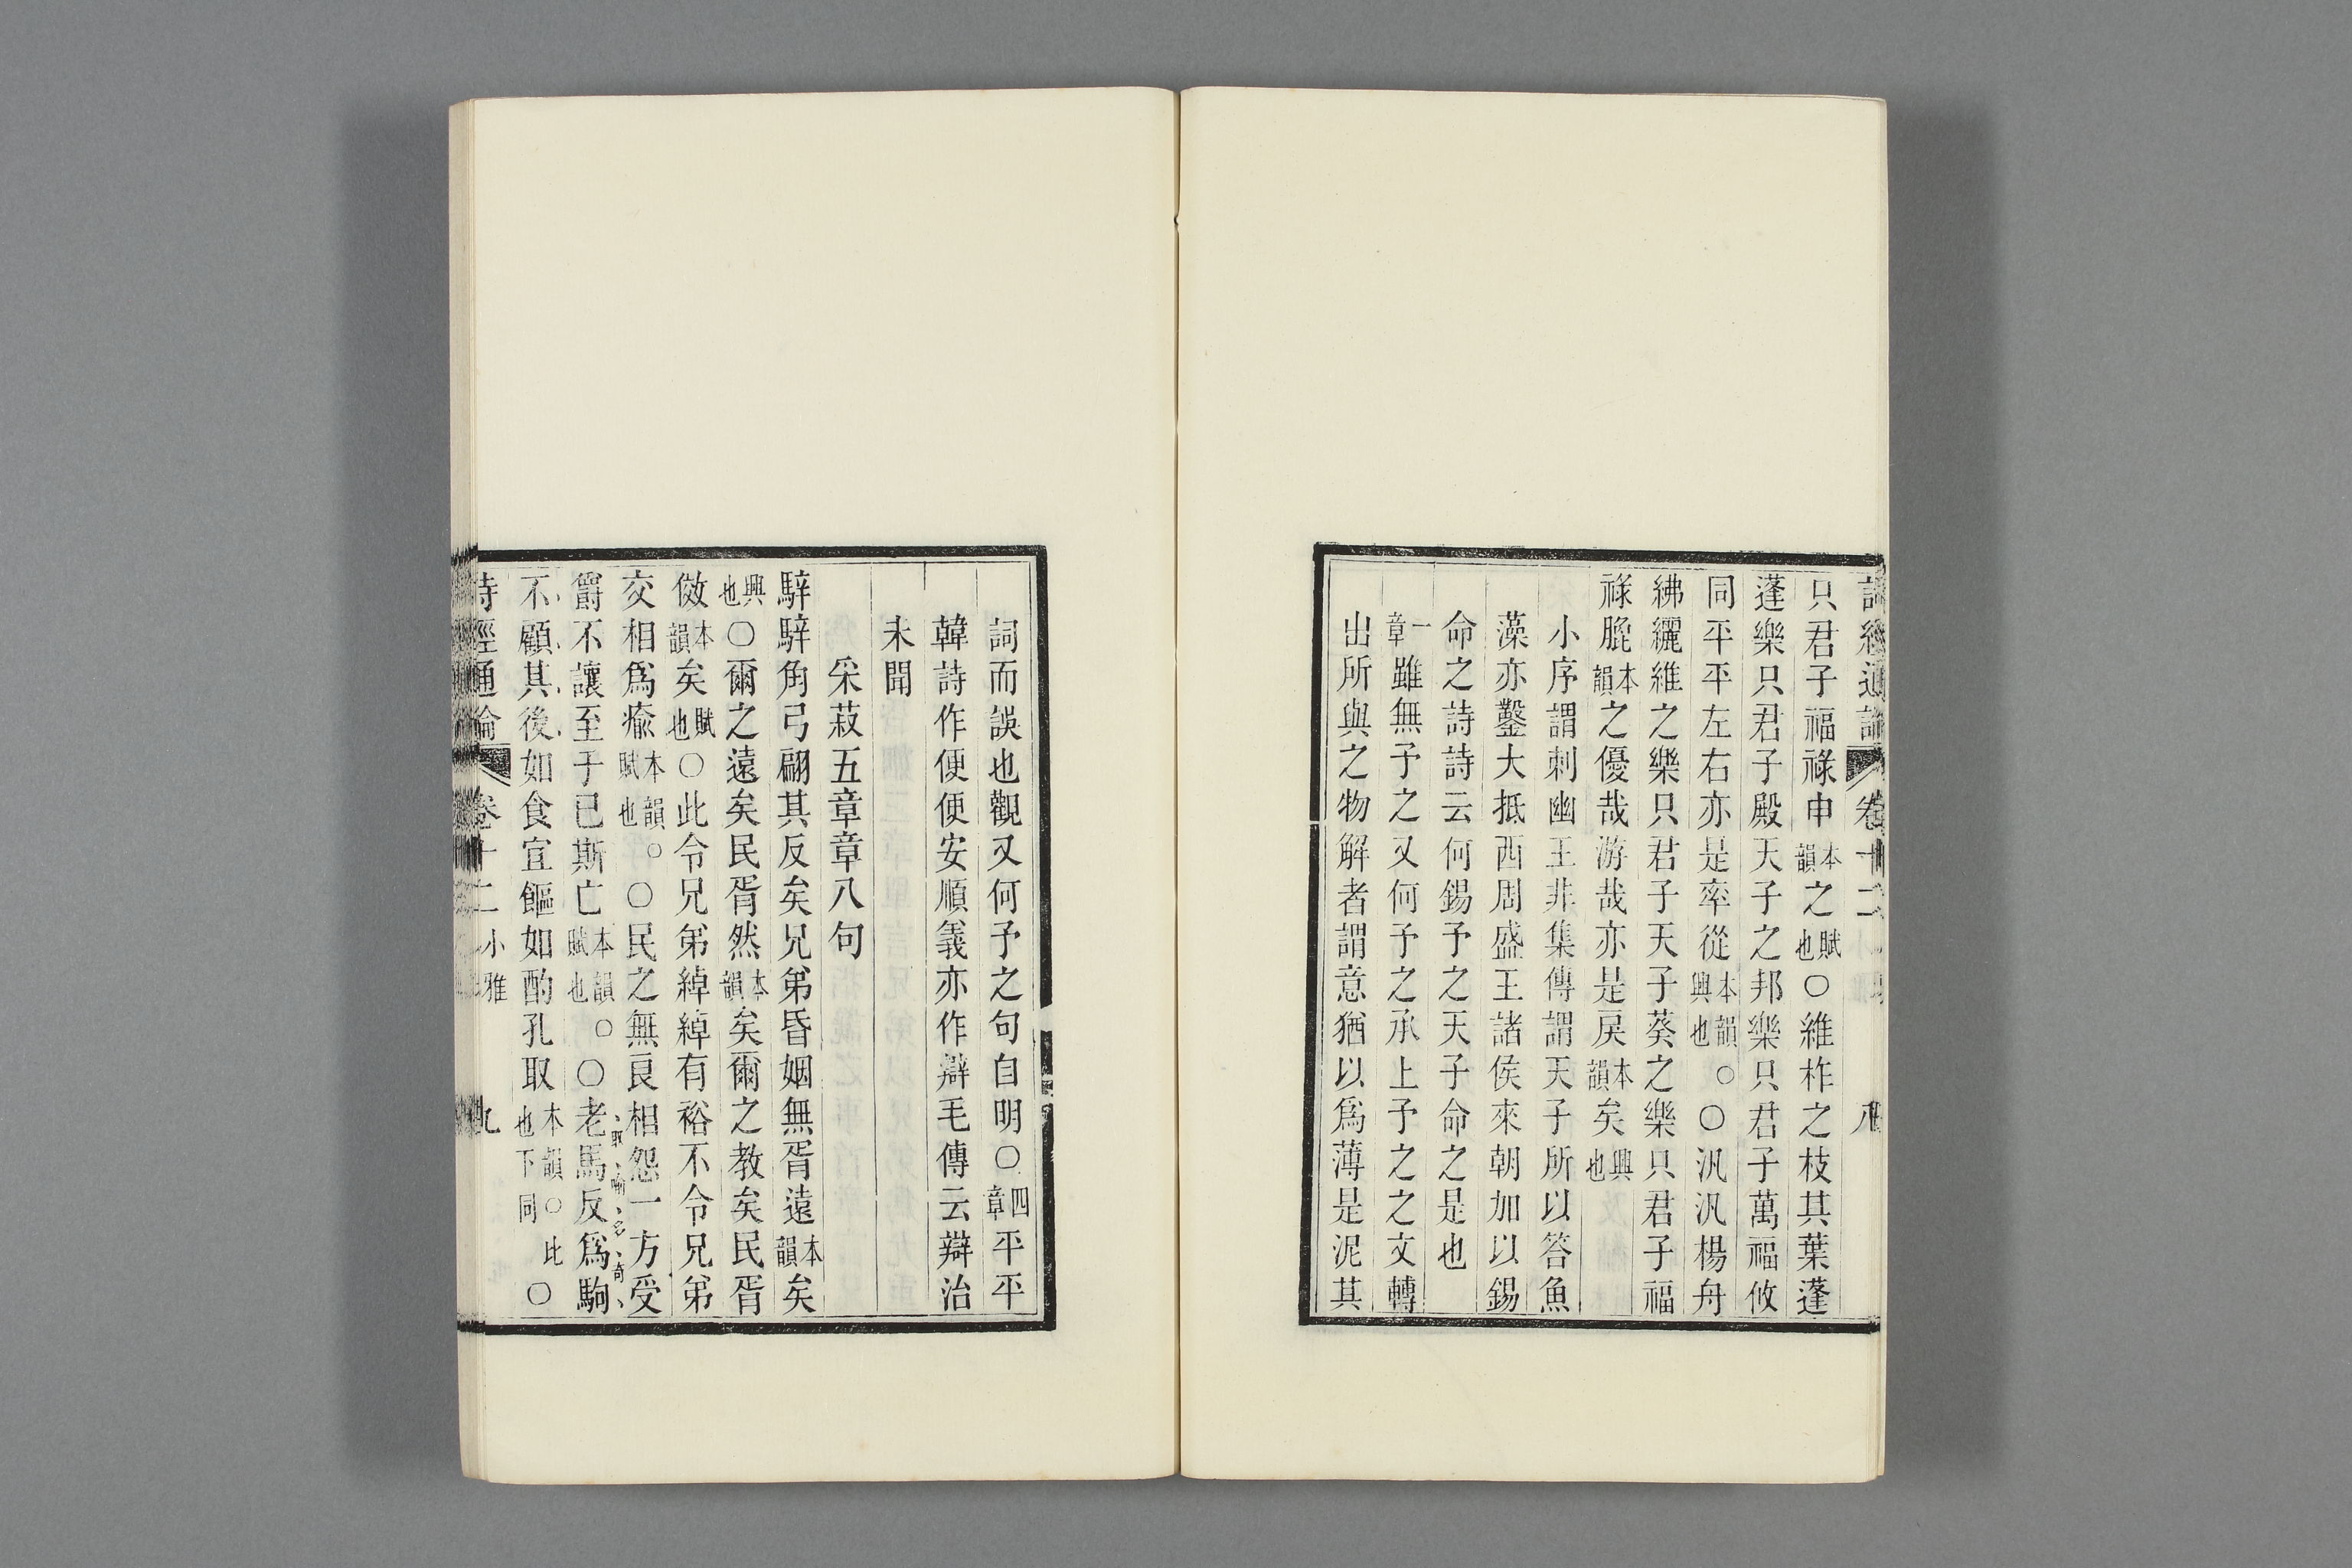 詩經通論 卷十二 八
只君子福祿申本韻之賦也○維柞之枝其葉蓬
蓬樂只君子殿天子之邦樂只君子萬福攸
同平平左右亦是率從本韻○興也○汎汎楊舟
紼纚維之樂只君子天子葵之樂只君子福
祿膍本韻之優哉游哉亦是戾本韻矣興也
小序謂刺幽王非集傳謂天子所以答魚
藻亦鑿大抵西周盛王諸侯來朝加以錫
命之詩詩云何錫予之天子命之是也
一章雖無予之又何予之承上予之之文轉
出所與之物解者謂意猶以爲薄是泥其
詞而誤也觀又何予之句自明○四章平平
韓詩作便便安順義亦作辯毛傳云辯治
未聞
采菽五章章八句
騂騂角弓翩其反矣兄弟昏姻無胥遠本韻矣
興也○爾之遠矣民胥然本韻矣爾之教矣民胥
傚本韻矣賦也○此令兄弟綽綽有裕不令兄弟
交相爲瘉本韻○賦也○民之無良相怨一方受
爵不讓至于已斯亡本韻○賦也○老馬反爲駒
取喻多奇
不顧其後如食宜饇如酌孔取本韻○比也下同○
詩經通論 卷十二 小雅 九